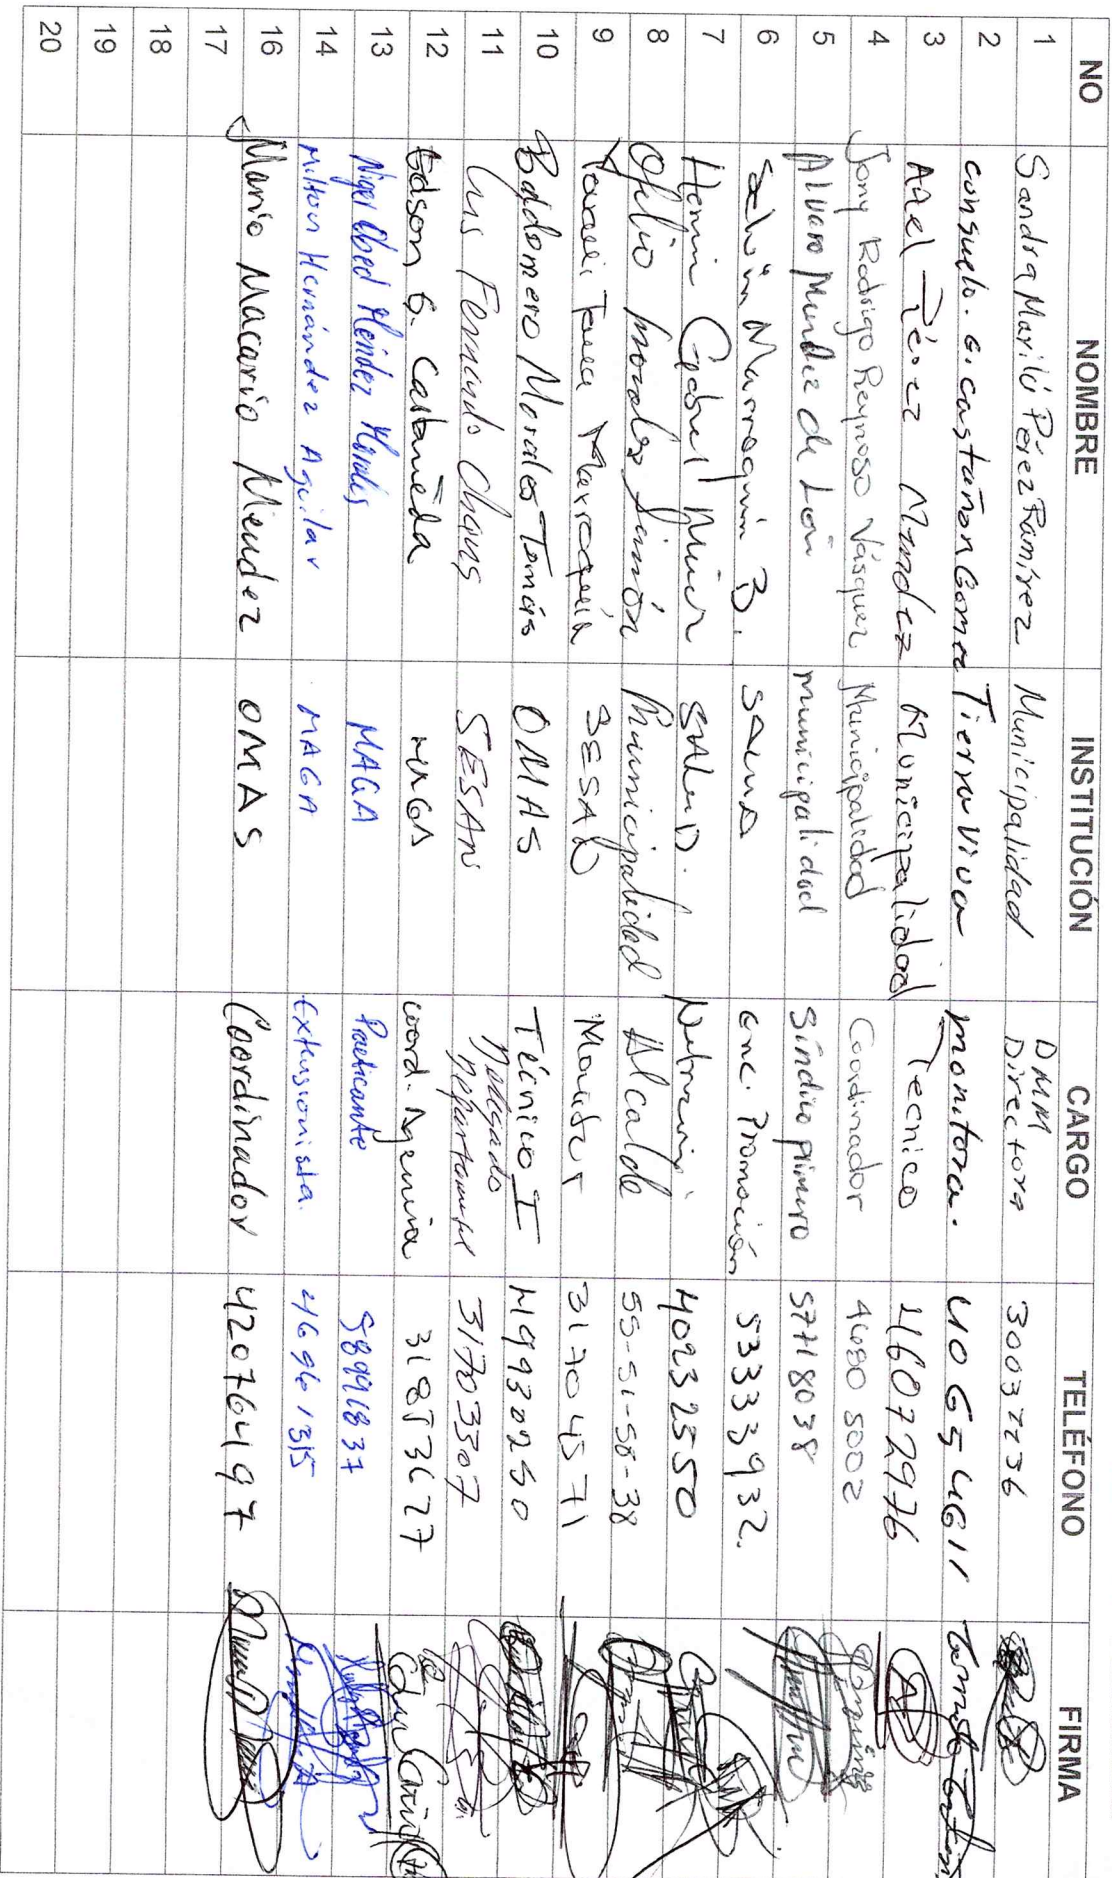 NO NOMBRE INSTITUCIÓN CARGO TELÉFONO FIRMA
1 Sandra Marilú Pérez Ramírez Municipalidad DMM Directora 30037236
2 consuelo. e. castañon Gomez Tierra Viva monitora. 40654611
3 Municipalidad Tecnico 46072976
4 Jony Rodrigo Reynoso Vásquez Municipalidad Coordinador 4680 5002
5 Alvaro Mendez de León municipalidad Síndico primero 57718038
6 Selvin Marroquin B. SALUD Enc. Promoción 53333932.
7 Gabriel SALUD. 40232550
8 Ofelio Morales Simón Municipalidad Alcalde 55-51-58-38
9 Marroquín SESAN Monitor 3170 4571
10 Baldomero Morales Tomás OMAS Técnico I 49930250
11 Luis Fernando SESAN Delegado Departamental 31703307
12 Edson G. Castañeda MAGA Coord. Agencia 31853627
13 Obed Méndez Morales MAGA Practicante 58991837
14 Milton Hernández Aguilar MAGA Extensionista. 46961315
16 Mario Macario Mendez OMAS Coordinador 42076497
17
18
19
20